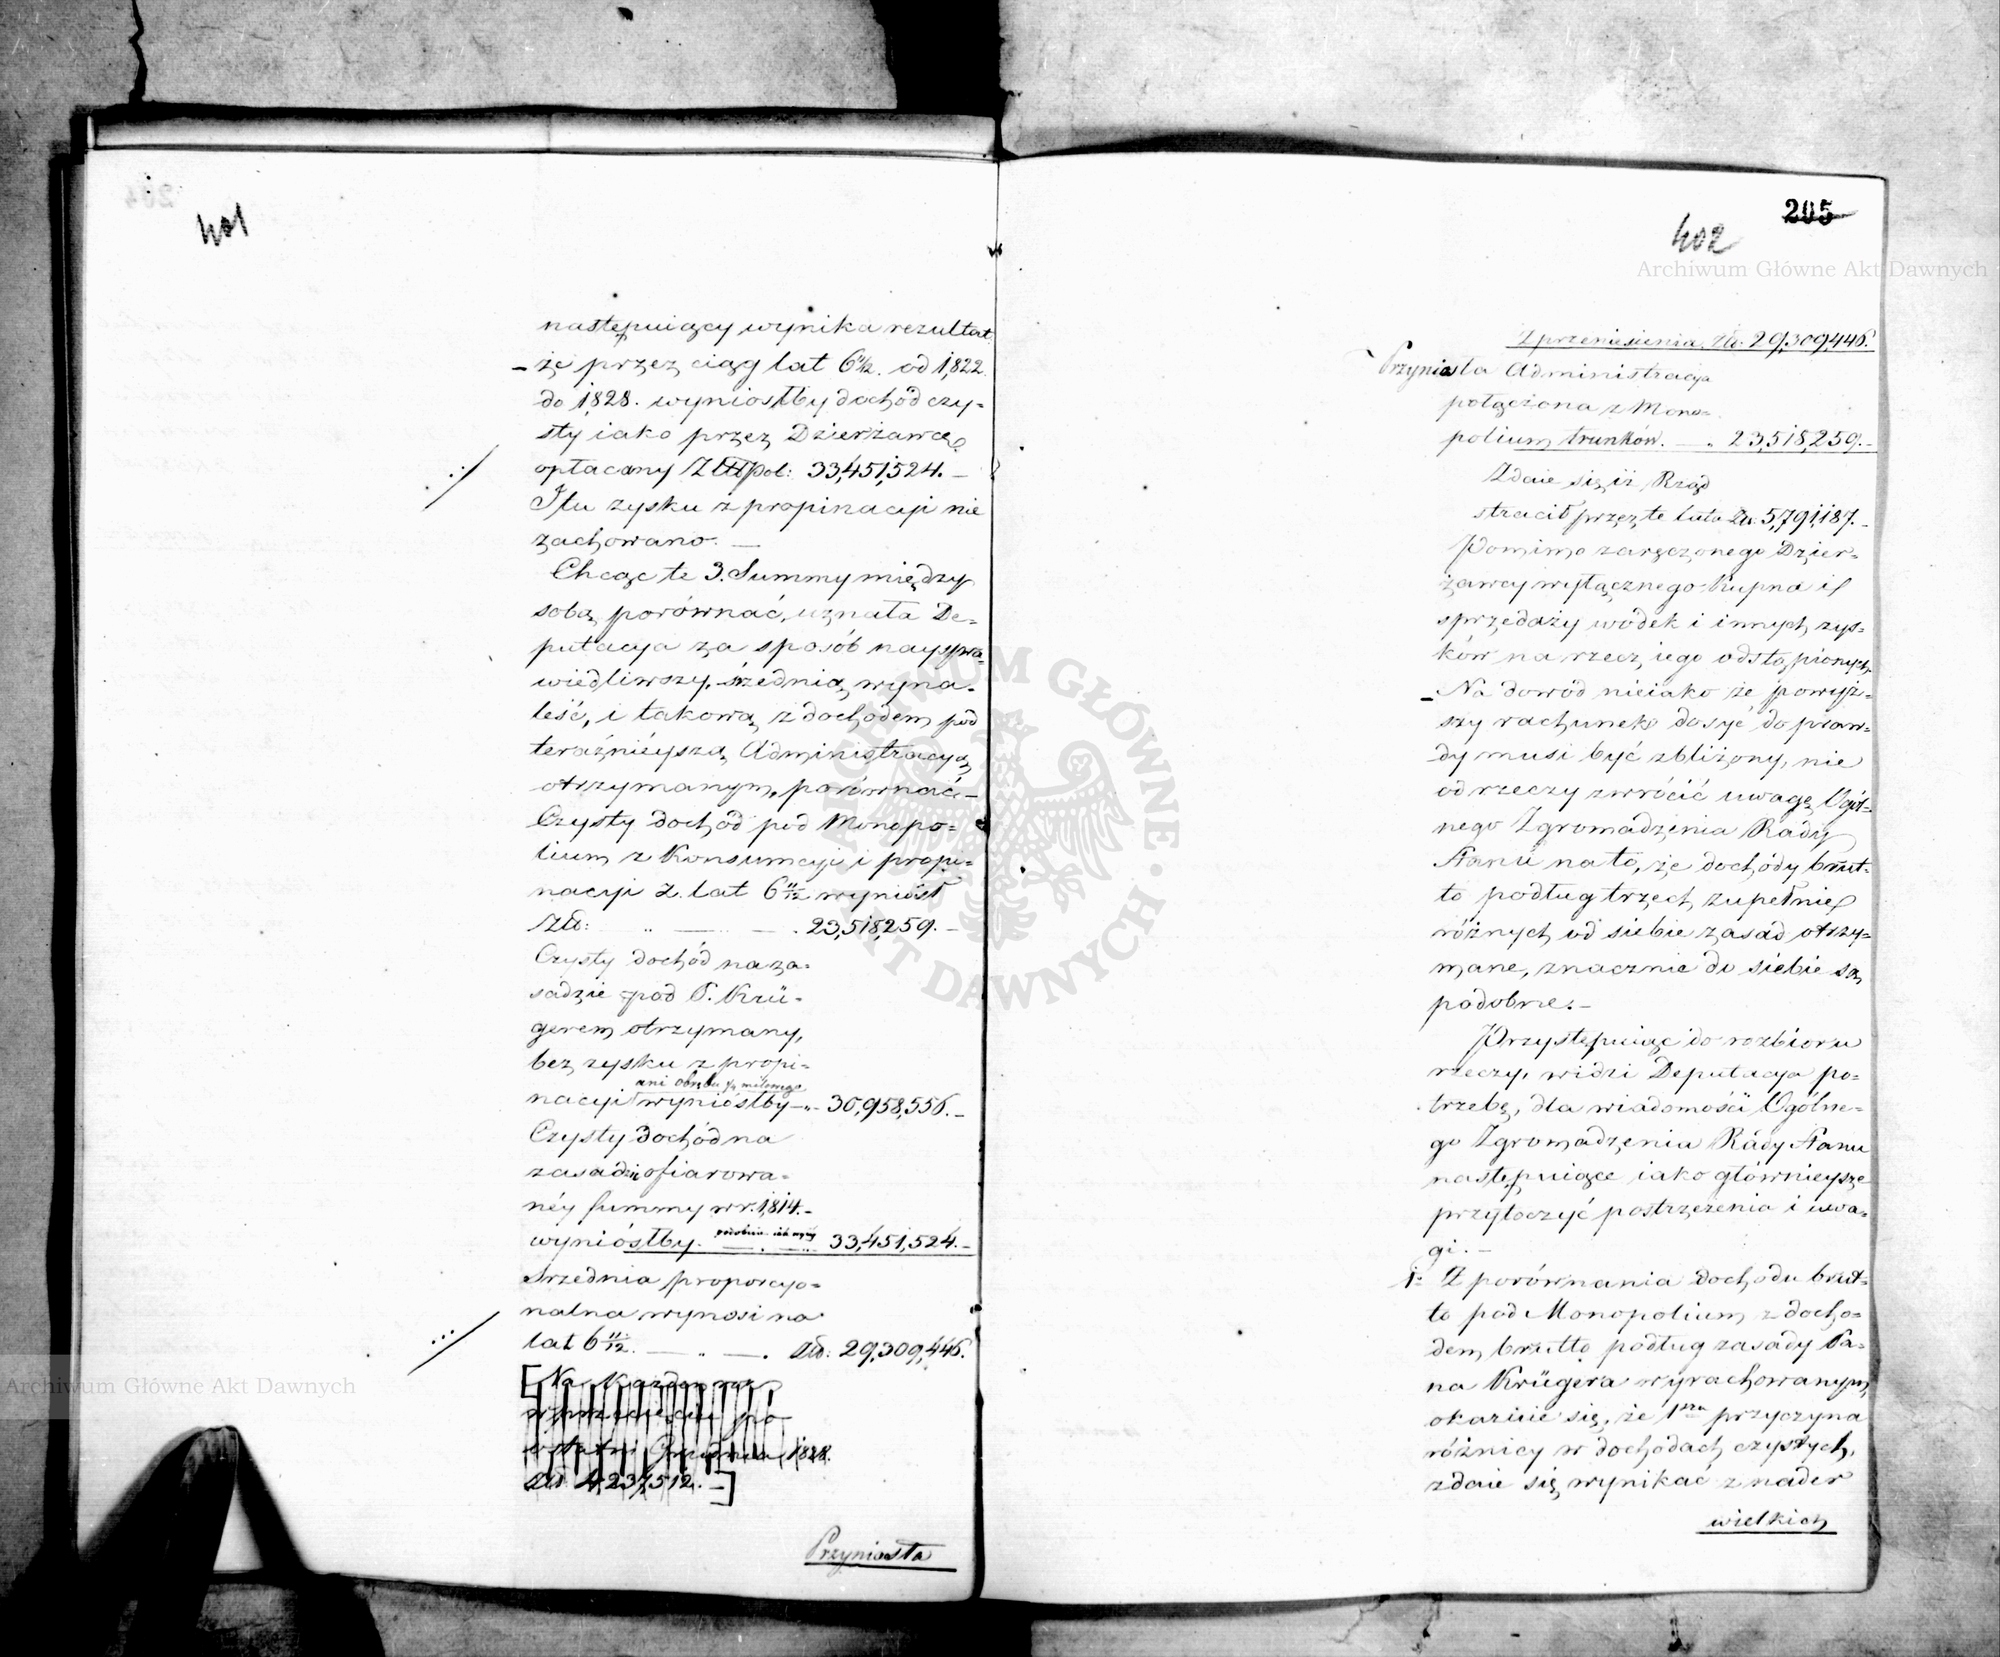 401
następuiący wynika rezultat
- że przez ciąg lat 6 11/12. od 1,822.
do 1,828. wyniosłby dochód czy=
sty iako przez Dzierżawcę
opłacany Złł pol: 33,451,524. —
I tu zysku z propinacyi nie
zachowano. —
Chcąc te 3. Summy między
sobą porównać, uznała De=
putacya za sposób nayspra=
wiedliwszy, srzednią wyna=
leść, i takową z dochodem pod
teraźnieyszą Administracyą
otrzymanym, porównać. —
Czysty dochód pod Monopo=
lium z Konsumcyi i propi=
nacyi z lat 6 11/12 wyniósł
Złł: „ — — . 23,518,259. —
Czysty dochód na za=
sadzie pod P. Krü=
gerem otrzymany,
bez zysku z propi=
ani obrębu milowego
nacyi wyniósłby — „ - 30,958,556. —
Czysty dochód na
zasadzie ofiarowa=
néy summy w r. 1,814. -
wyniósłby. podobnie iak wyżéy 33,451,524. —
Srzednia proporcyo=
nalna wynosi na
lat 6 11/12. — „ — . Złł: 29,309,446.
[Na każden
1828.
Złł 4,237,512. —]
Przyniosła
205
402
Archiwum Główne Akt Dawnych
Z przeniesienia Złł. 29,309,446.
Przyniosła Administracya
połączona z Mono=
polium trunków. — „ 23,518,259. -
Zdaie się iż Rząd
stracił przez te lata Złł. 5,791,187. -
Pomimo zaręczonego Dzier=
żawcy wyłącznego Kupna i
sprzedaży wódek i innych zys=
ków na rzecz iego odstąpionych
- Na dowód nieiako że powyż=
szy rachunek dosyć do praw=
dy musi być zbliżony, nie
od rzeczy zwrócić uwagę Ogól=
nego Zgromadzenia Rady
Stanu na to, że dochody brut=
to podług trzech zupełnie
różnych od siebie zasad otrzy=
mane, znacznie do siebie są
podobne. —
Przystępuiąc do rozbioru
rzeczy, widzi Deputacya po=
trzebę, dla wiadomości Ogólne=
go Zgromadzenia Rády Stanu
następuiące iako główniejsze
przytoczyć postrzeżenia i uwa=
gi. —
1. Z porównania dochodu brut=
to pod Monopolium z docho=
dem brutto podług zasady Pa=
na Krügera wyrachowanym
okazuie się, że 1sza przyczyna
różnicy w dochodach czystych,
zdaie się wynikać z nader
wielkich
ARCHIWUM GŁÓWNE AKT DAWNYCH
Archiwum Główne Akt Dawnych